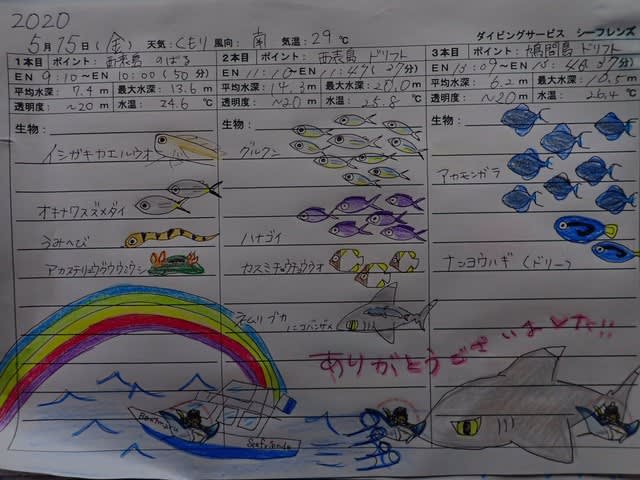 2020
5月15日(金) 天気:くもり 風向:南 気温:29℃
ダイビングサービス シーフレンズ
1本目 ポイント:西表島 のばる
EN 9:10〜EN 10:00(50分)
平均水深:7.4m 最大水深:13.6m
透明度:~20m 水温:24.6℃
生物:
イシガキカエルウオ
オキナワスズメダイ
うみへび
2本目 ポイント:西表島 ドリフト
EN 11:10〜EN 11:47(37分)
平均水深:14.3m 最大水深:20.0m
透明度:~20m 水温:25.8℃
生物:
グルクン
ハナゴイ
カスミチョウチョウウオ
ネムリブカ
3本目 ポイント:鳩間島 ドリフト
平均水深:6.2m 最大水深:10.5m
透明度:~20m 水温:26.4℃
生物:
アカモンガラ
ナンヨウハギ(ドリー)
ありがとうございました!!
Seafriends